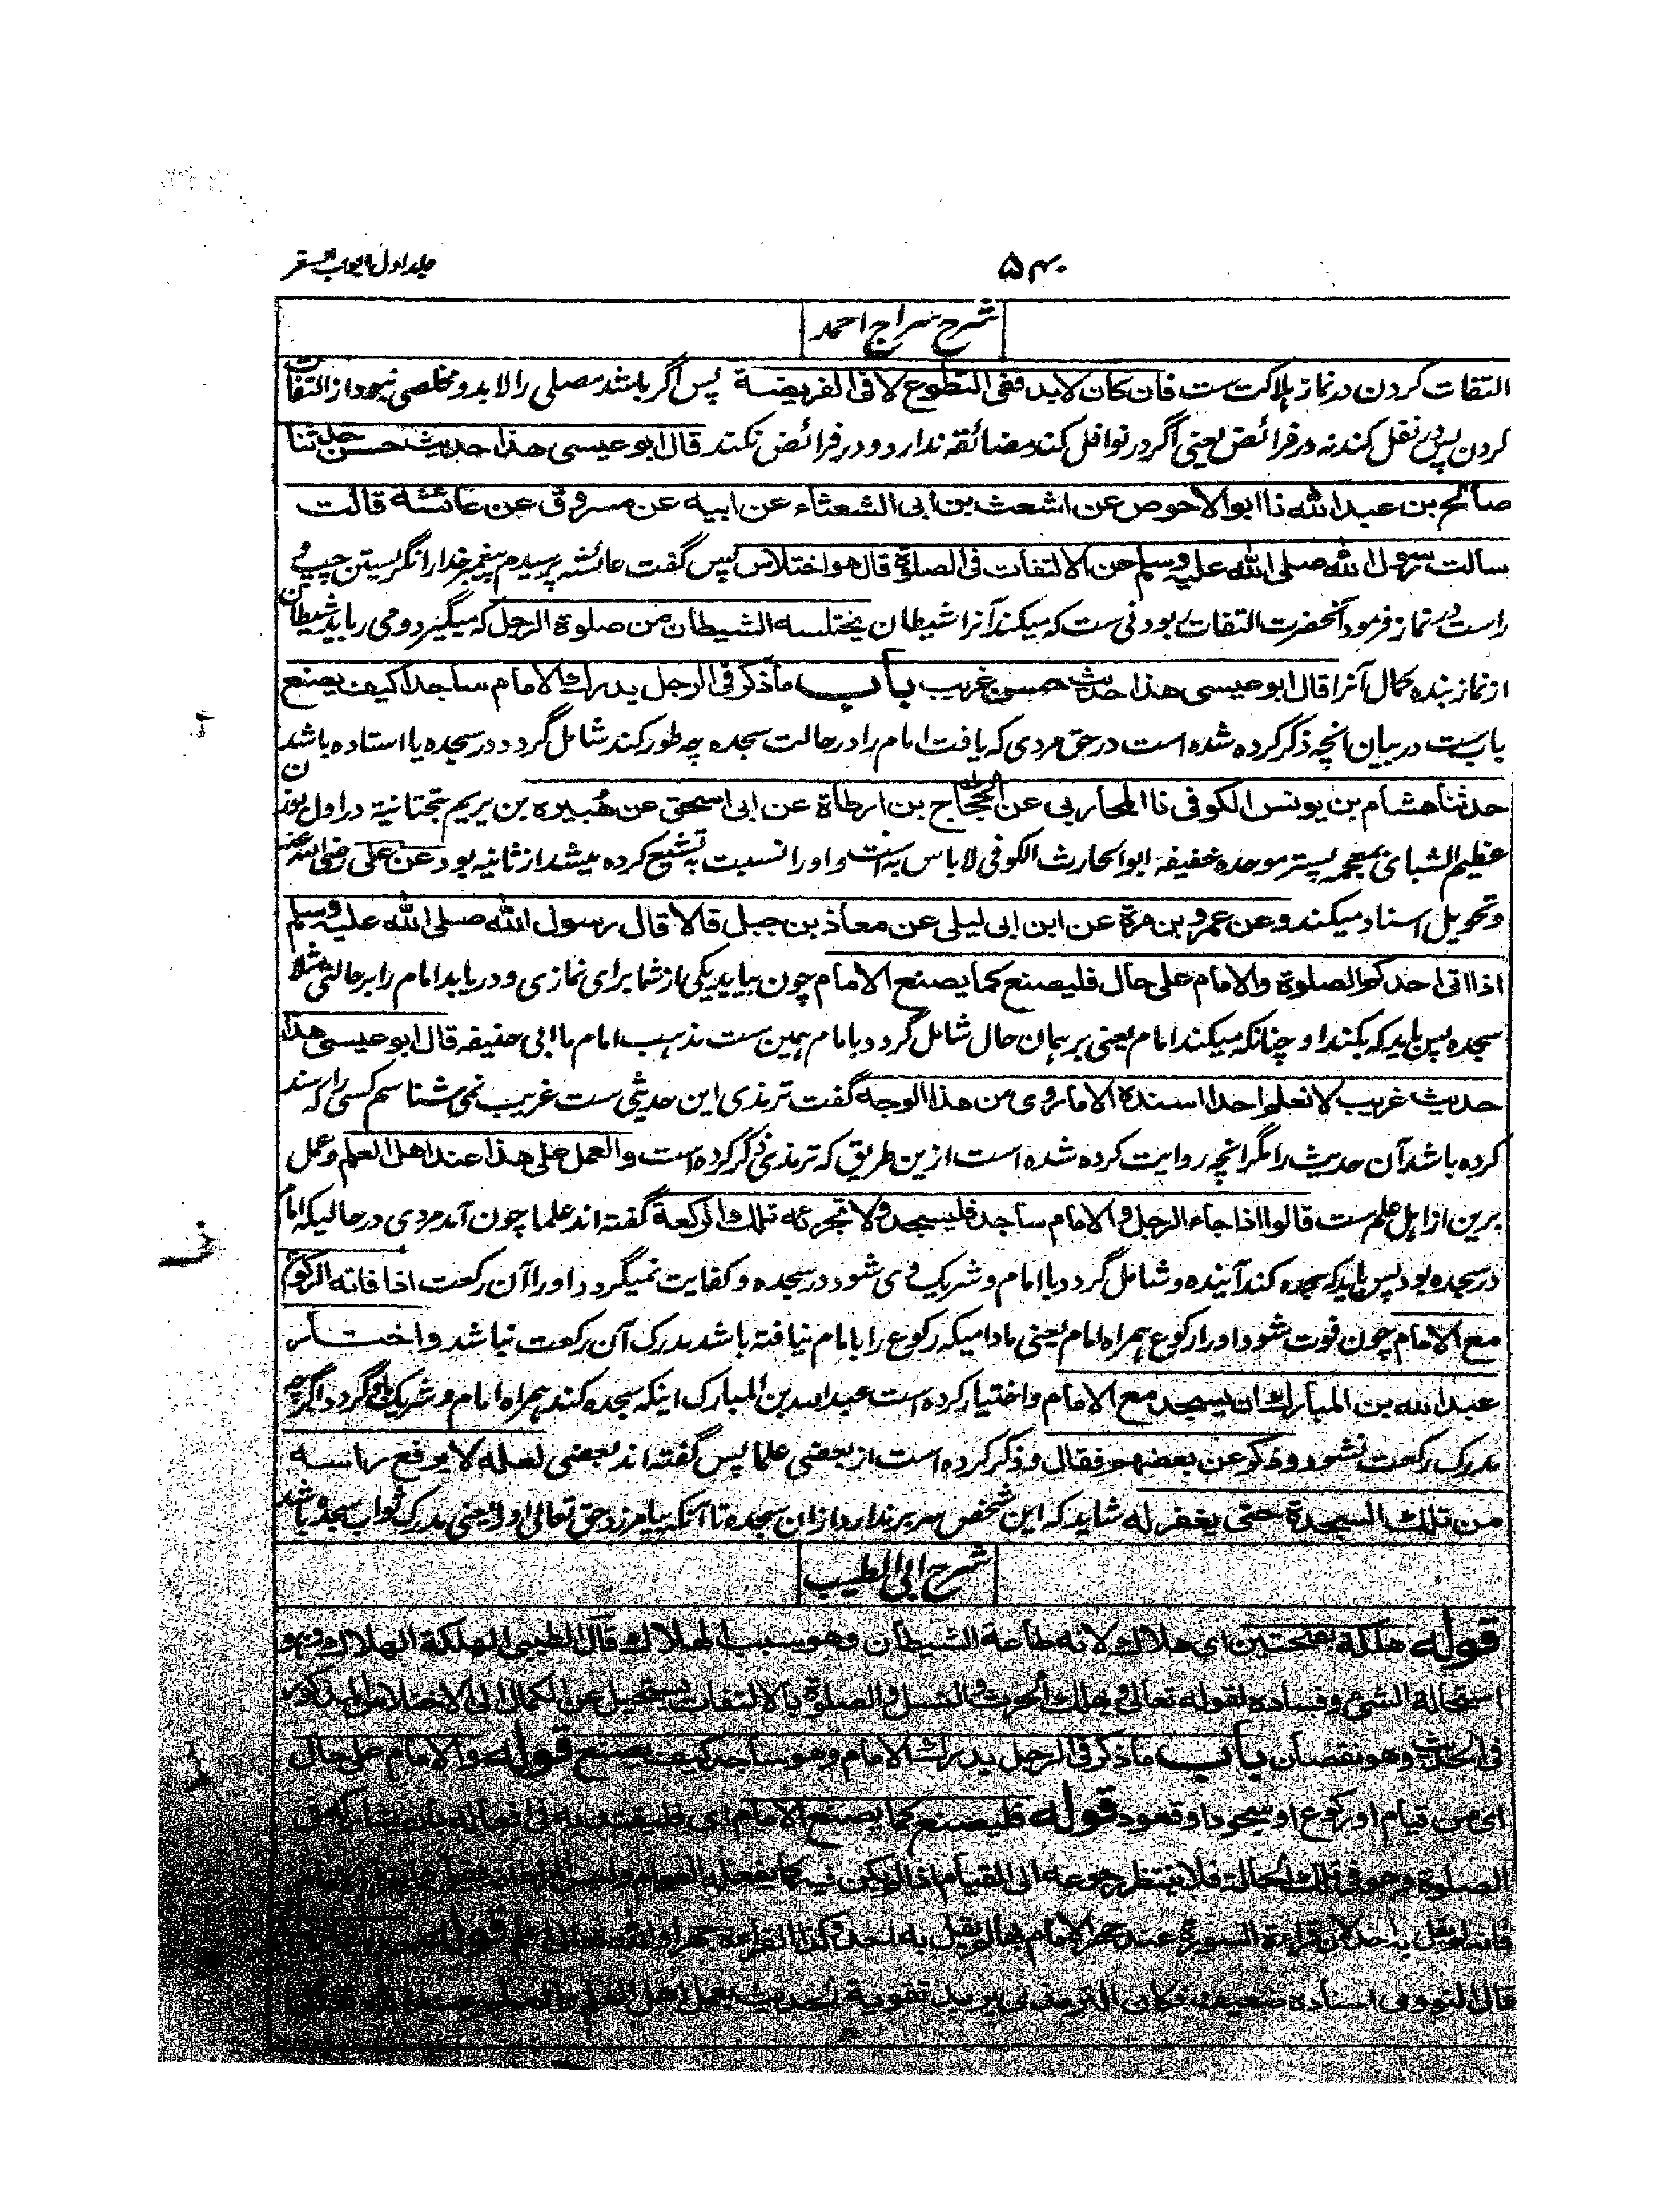 جلد اول ابواب السفر
۵۴۰
شرح سراج احمد
التفات کردن در نماز ہلاکت ست فان کان لابد ففی التطوع لا فی الفریضة پس اگر باشد مصلی را لابد و مخلصی نبود از التفات
کردن پس در نفل کند نه در فرائض یعنی اگر در نوافل کند مضائقه ندارد و در فرائض نکند قال ابو عیسی هذا حدیث حسن حدثنا
صالح بن عبد الله نا ابو الاحوص عن اشعث بن ابی الشعثاء عن ابیه عن مسروق عن عائشة قالت
سالت رسول الله صلی الله علیه وسلم عن الالتفات فی الصلوة قال هو اختلاس پس گفت عائشه پرسیدم پیغمبر خدا را نگریستن چپ و
راست در نماز فرمود آنحضرت التفات ربودنی ست که میکند آنرا شیطان یختلسه الشیطان من صلوة الرجل که میگیرد و می رباید شیطان
از نماز بنده کمال آنرا قال ابو عیسی هذا حدیث حسن غریب باب ما ذکر فی الرجل یدرک الامام ساجدا کیف یصنع
باب ست در بیان انچه ذکر کرده شده است در حق مردی که یافت امام را در حالت سجده چه طور کند شامل گردد در سجده یا استاده باشد
حدثنا هشام بن یونس الکوفی نا المحاربی عن الحجاج بن ارطاة عن ابی اسحق عن هُبیره بن یریم بتحتانیة در اول بوزن
عظیم الشبامی بمعجمه پستر موحده خفیفه ابو الحارث الکوفی لا باس به است و او را نسبت به تشیع کرده میشد از ثانیه بود عن علی رضی الله عنه
و تحویل اسناد میکند و عن عمرو بن مرة عن ابن ابی لیلی عن معاذ بن جبل قالا قال رسول الله صلی الله علیه وسلم
اذا اتی احدکم الصلوة والامام علی حال فلیصنع کما یصنع الامام چون بیاید یکی از شما برای نمازی و دریابد امام را بر حالتی مثلا
سجده پس باید که بکند او چنانکه میکند امام یعنی بر همان حال شامل گردد با امام همین ست مذهب امام ما ابی حنیفه قال ابو عیسی هذا
حدیث غریب لا نعلم احدا اسنده الا ما روی من هذا الوجه گفت ترمذی این حدیثی ست غریب نمی شناسم کسی را که سند
کرده باشد آن حدیث را مگر انچه روایت کرده شده است ازین طریق که ترمذی ذکر کرده است والعمل علی هذا عند اهل العلم و عمل
برین از اهل علم ست قالوا اذا جاء الرجل والامام ساجد فلیسجد ولا تجزئه تلک الرکعة گفته اند علما چون آمد مردی در حالیکه امام
در سجده بود پس باید که سجده کند آینده و شامل گردد با امام و شریک وی شود در سجده و کفایت نمیگردد او را آن رکعت اذا فاته الرکوع
مع الامام چون فوت شود او را رکوع همراه امام یعنی مادامیکه رکوع را با امام نیافته باشد مدرک آن رکعت نباشد واختار
عبد الله بن المبارک ان یسجد مع الامام و اختیار کرده است عبد الله بن المبارک اینکه سجده کند همراه امام و شریک او گردد اگرچه
مدرک رکعت نشود وذکر عن بعضهم فقال و ذکر کرده است از بعضی علما پس گفته اند بعضی لعله لا یرفع راسه
من تلک السجدة حتی یغفر له شاید که این شخص سر بر ندارد ازان سجده تا آنکه بیامرزد حق تعالی او را یعنی مدرک ثواب سجده باشد
شرح ابی الطیب
قوله هلکة بفتحتین ای هلاک لانه طاعة الشیطان وهو سبب الهلاک قال الطیبی الهلکة الهلاک وهو
استحالة الشیء وفساده لقوله تعالی ویهلک الحرث والنسل والصلوة بالالتفات یستحیل عن الکمال الی الاختلاس المذکور
فی الحدیث وهو نقصان باب ما ذکر فی الرجل یدرک الامام وهو ساجد کیف یصنع قوله والامام علی حال
ای من قیام او رکوع او سجود او قعود قوله فلیصنع کما یصنع الامام ای فلیقتد به فی افعاله بان یشارکه فی
الصلوة وهو فی تلک الحالة فلا ینتظر رجوعه الی القیام کما یفعله العوام
قراءة السورة عند جهر الامام لم یقل به احد وکذا القراءة جهرا والله تعالی اعلم قوله
قال النووی اسناده ضعیف فکان الترمذی یرید تقویة الحدیث بعمل اهل العلم